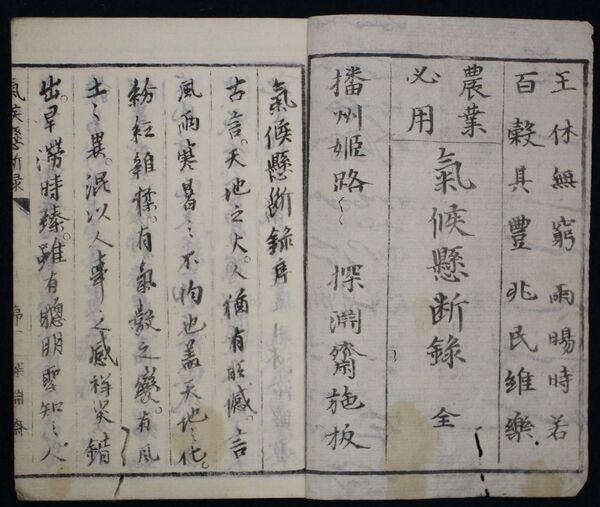 王休無窮雨暘時若
百穀其豊兆民維樂
農業
必用
氣候懸断錄 全
播州姫路 探淵齋施板
氣候懸断錄序
古言。天地之大。人猶有所憾。言
風雨寒暑之不均也蓋天地之化。
紛紜雜糅。有氣数之變。有風
土之異。混以人事之感祥災錯
出。旱澇時臻。雖有聰明聖知之人
氣候懸断録 序 一 探淵齋